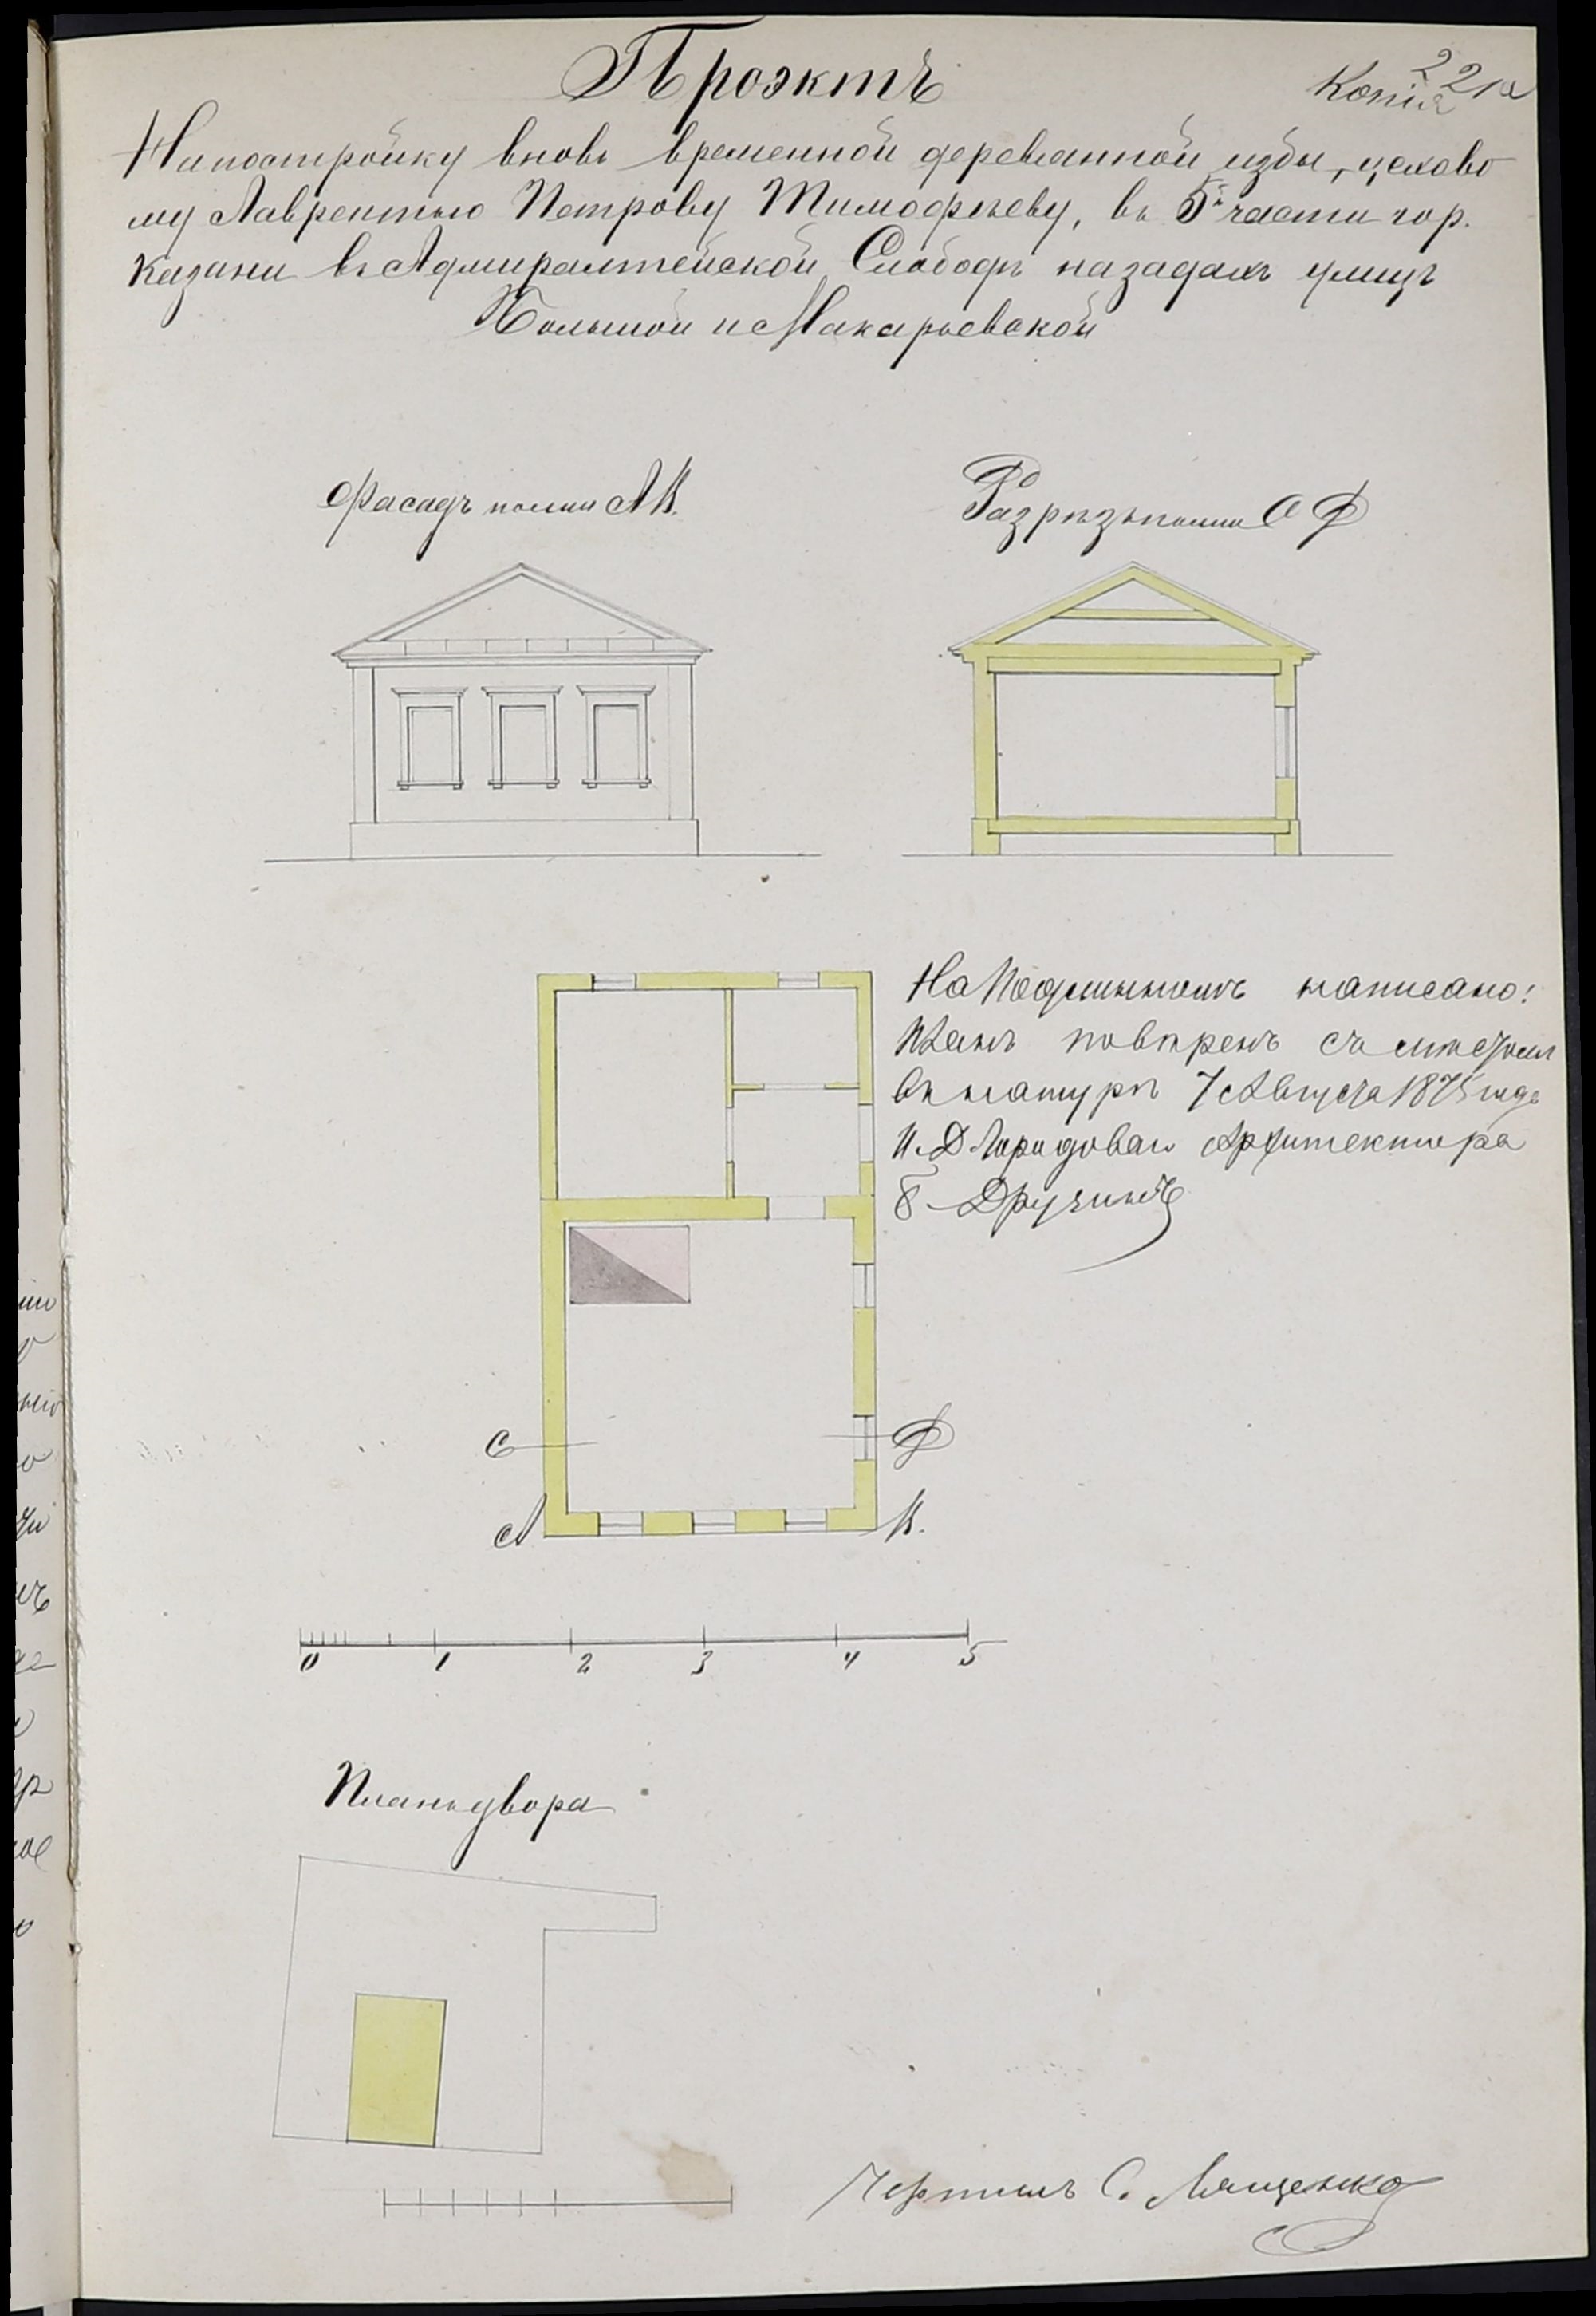 Проэктъ
Копія
22
На постройку вновь временной деревянной избы, цехово
му Лаврентью Петрову Тимофѣеву, въ 5й части гор.
Казани въ Адмиралтейской Слободѣ на задахъ улицъ
Большой и Макарьевской
Фасадъ по лин АВ.
Разрѣзъ по лин СД
На Подлинномъ написано:
Планъ повѣренъ съ мѣстомъ
въ натурѣ 7 Августа 1875 года
И. Д. Городоваго Архитектора
Дружинъ
С
Д
А
В.
0 1 2 3 4 5
Планъ двора
Чертилъ С. Лященко